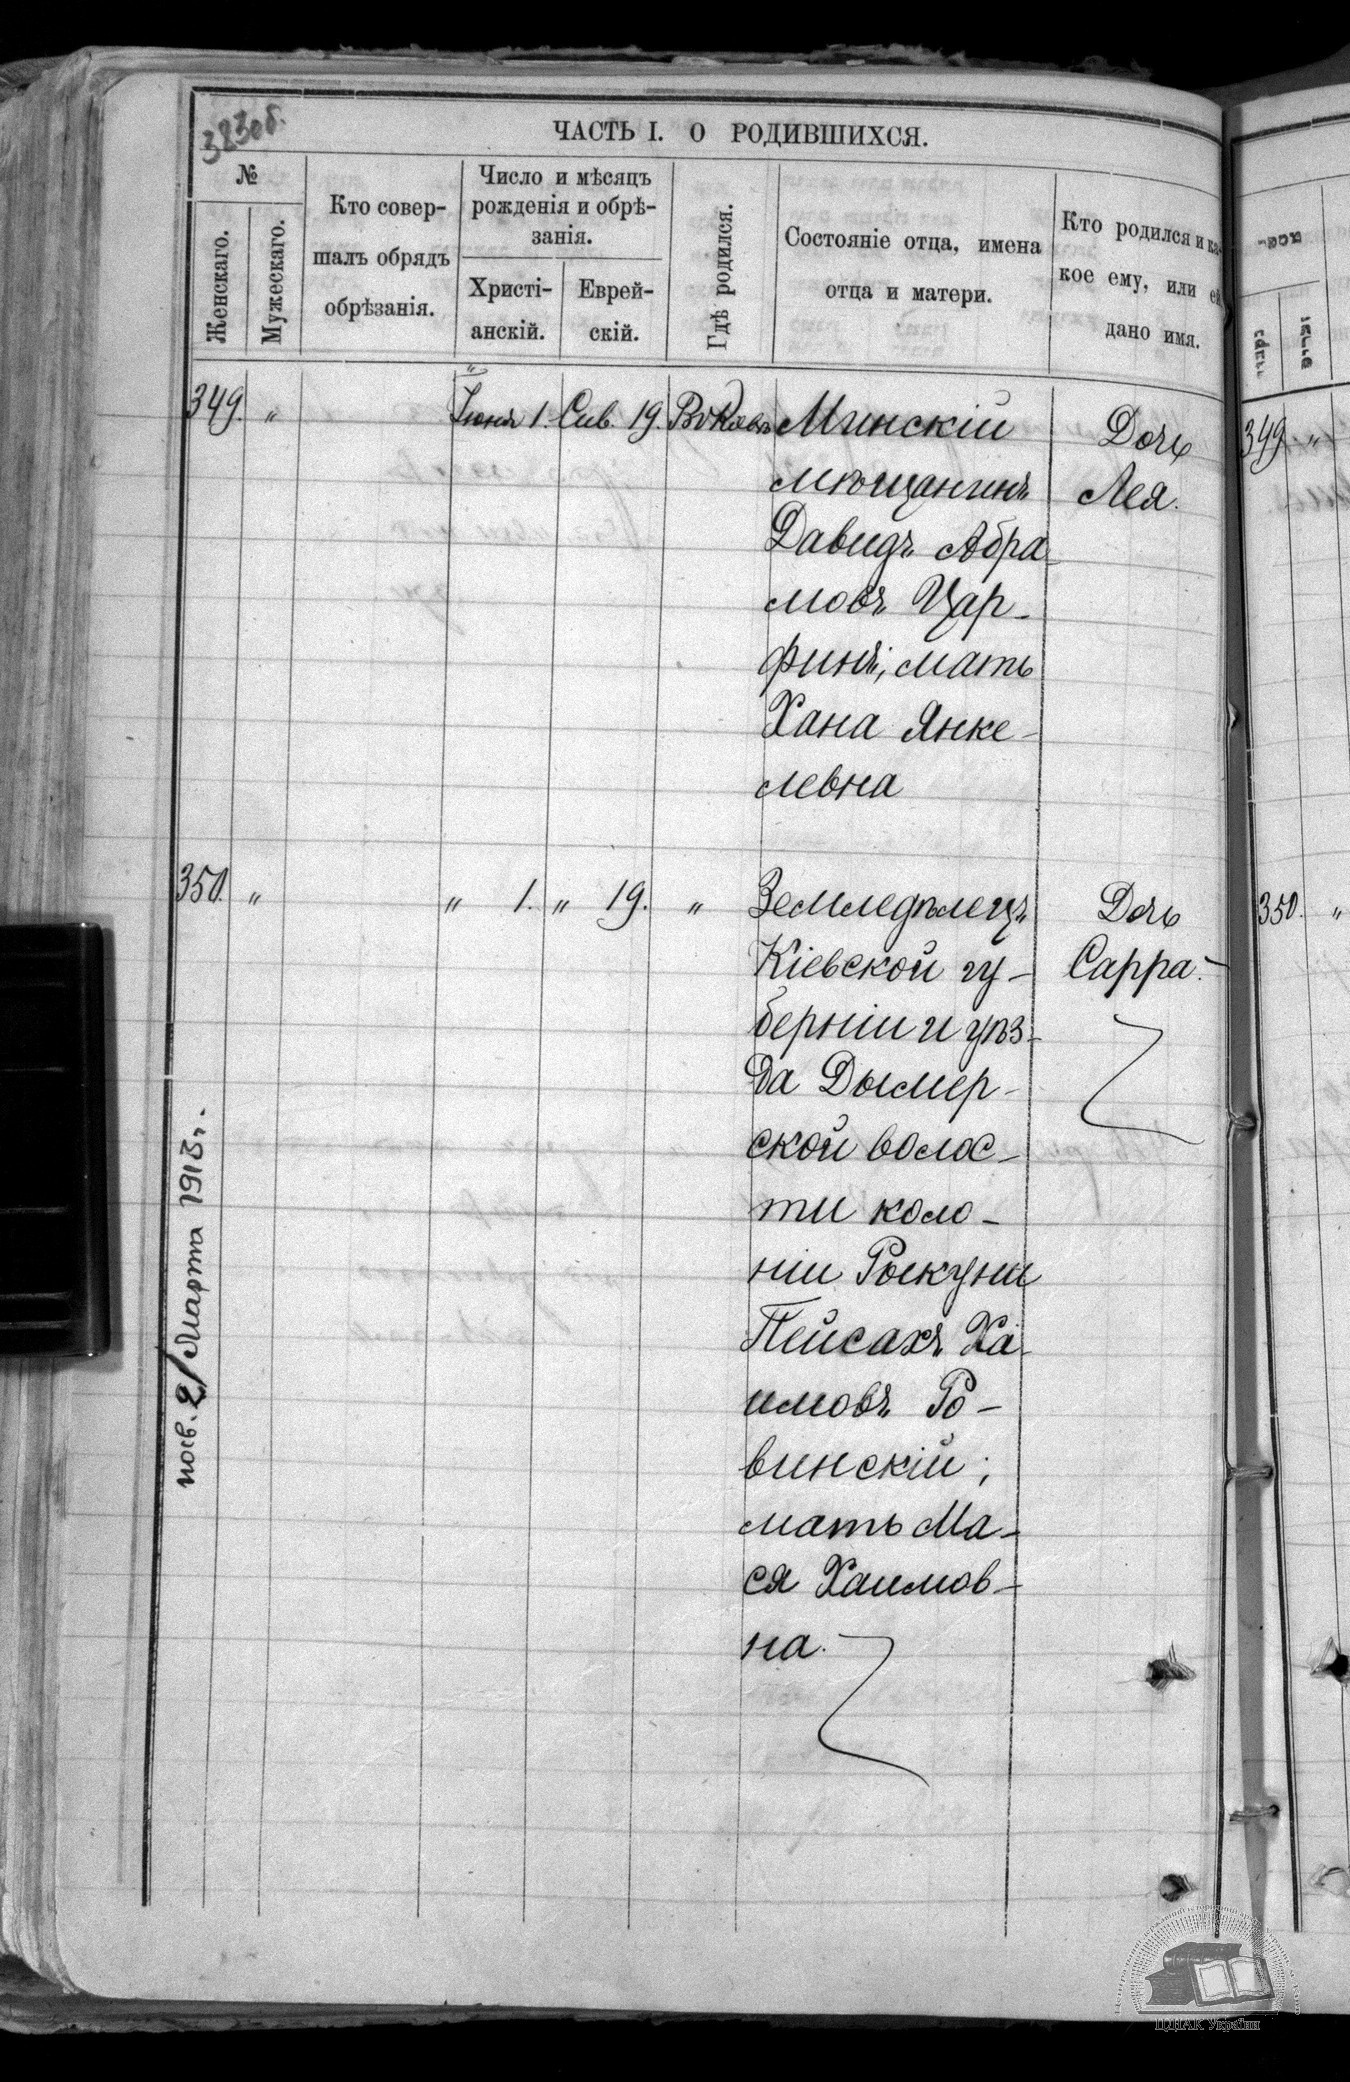 383об.
ЧАСТЬ I. О РОДИВШИХСЯ.
№
Женскаго.
Мужескаго.
Кто совер-
шалъ обрядъ
обрѣзанія.
Число и мѣсяцъ
рожденія и обрѣ-
занія.
Христі-
анскій.
Еврей-
скій.
Гдѣ родился.
Состояніе отца, имена
отца и матери.
Кто родился и ка-
кое ему, или ей
дано имя.
349. " Іюня 1. Сив. 19. Минскій
мѣщанинъ
Давидъ Абра-
мовъ Цар-
финъ, мать
Хана Янке-
левна
Дочь
Лея.
349 "
350. " " 1. " 19. " Земледѣлецъ
Кіевской гу-
берніи и уѣз-
да Дымер-
ской волос-
ти коло-
ніи Рыкуни
Пейсахъ Ха-
имовъ Ро-
винскій;
мать Ма-
ся Хаимов-
на.
Дочь
Сарра.
350. "
2/Марта 1913г.
ЦДІАК України